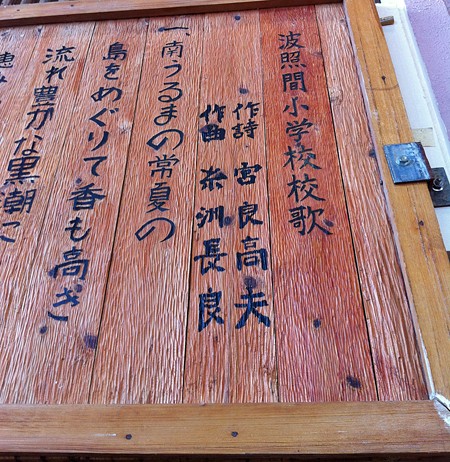 波照間小学校校歌
作詩 宮良高夫
作曲 糸洲長良
一、南うるまの常夏の
島をめぐりて香も高き
流れ豊かな黒潮に